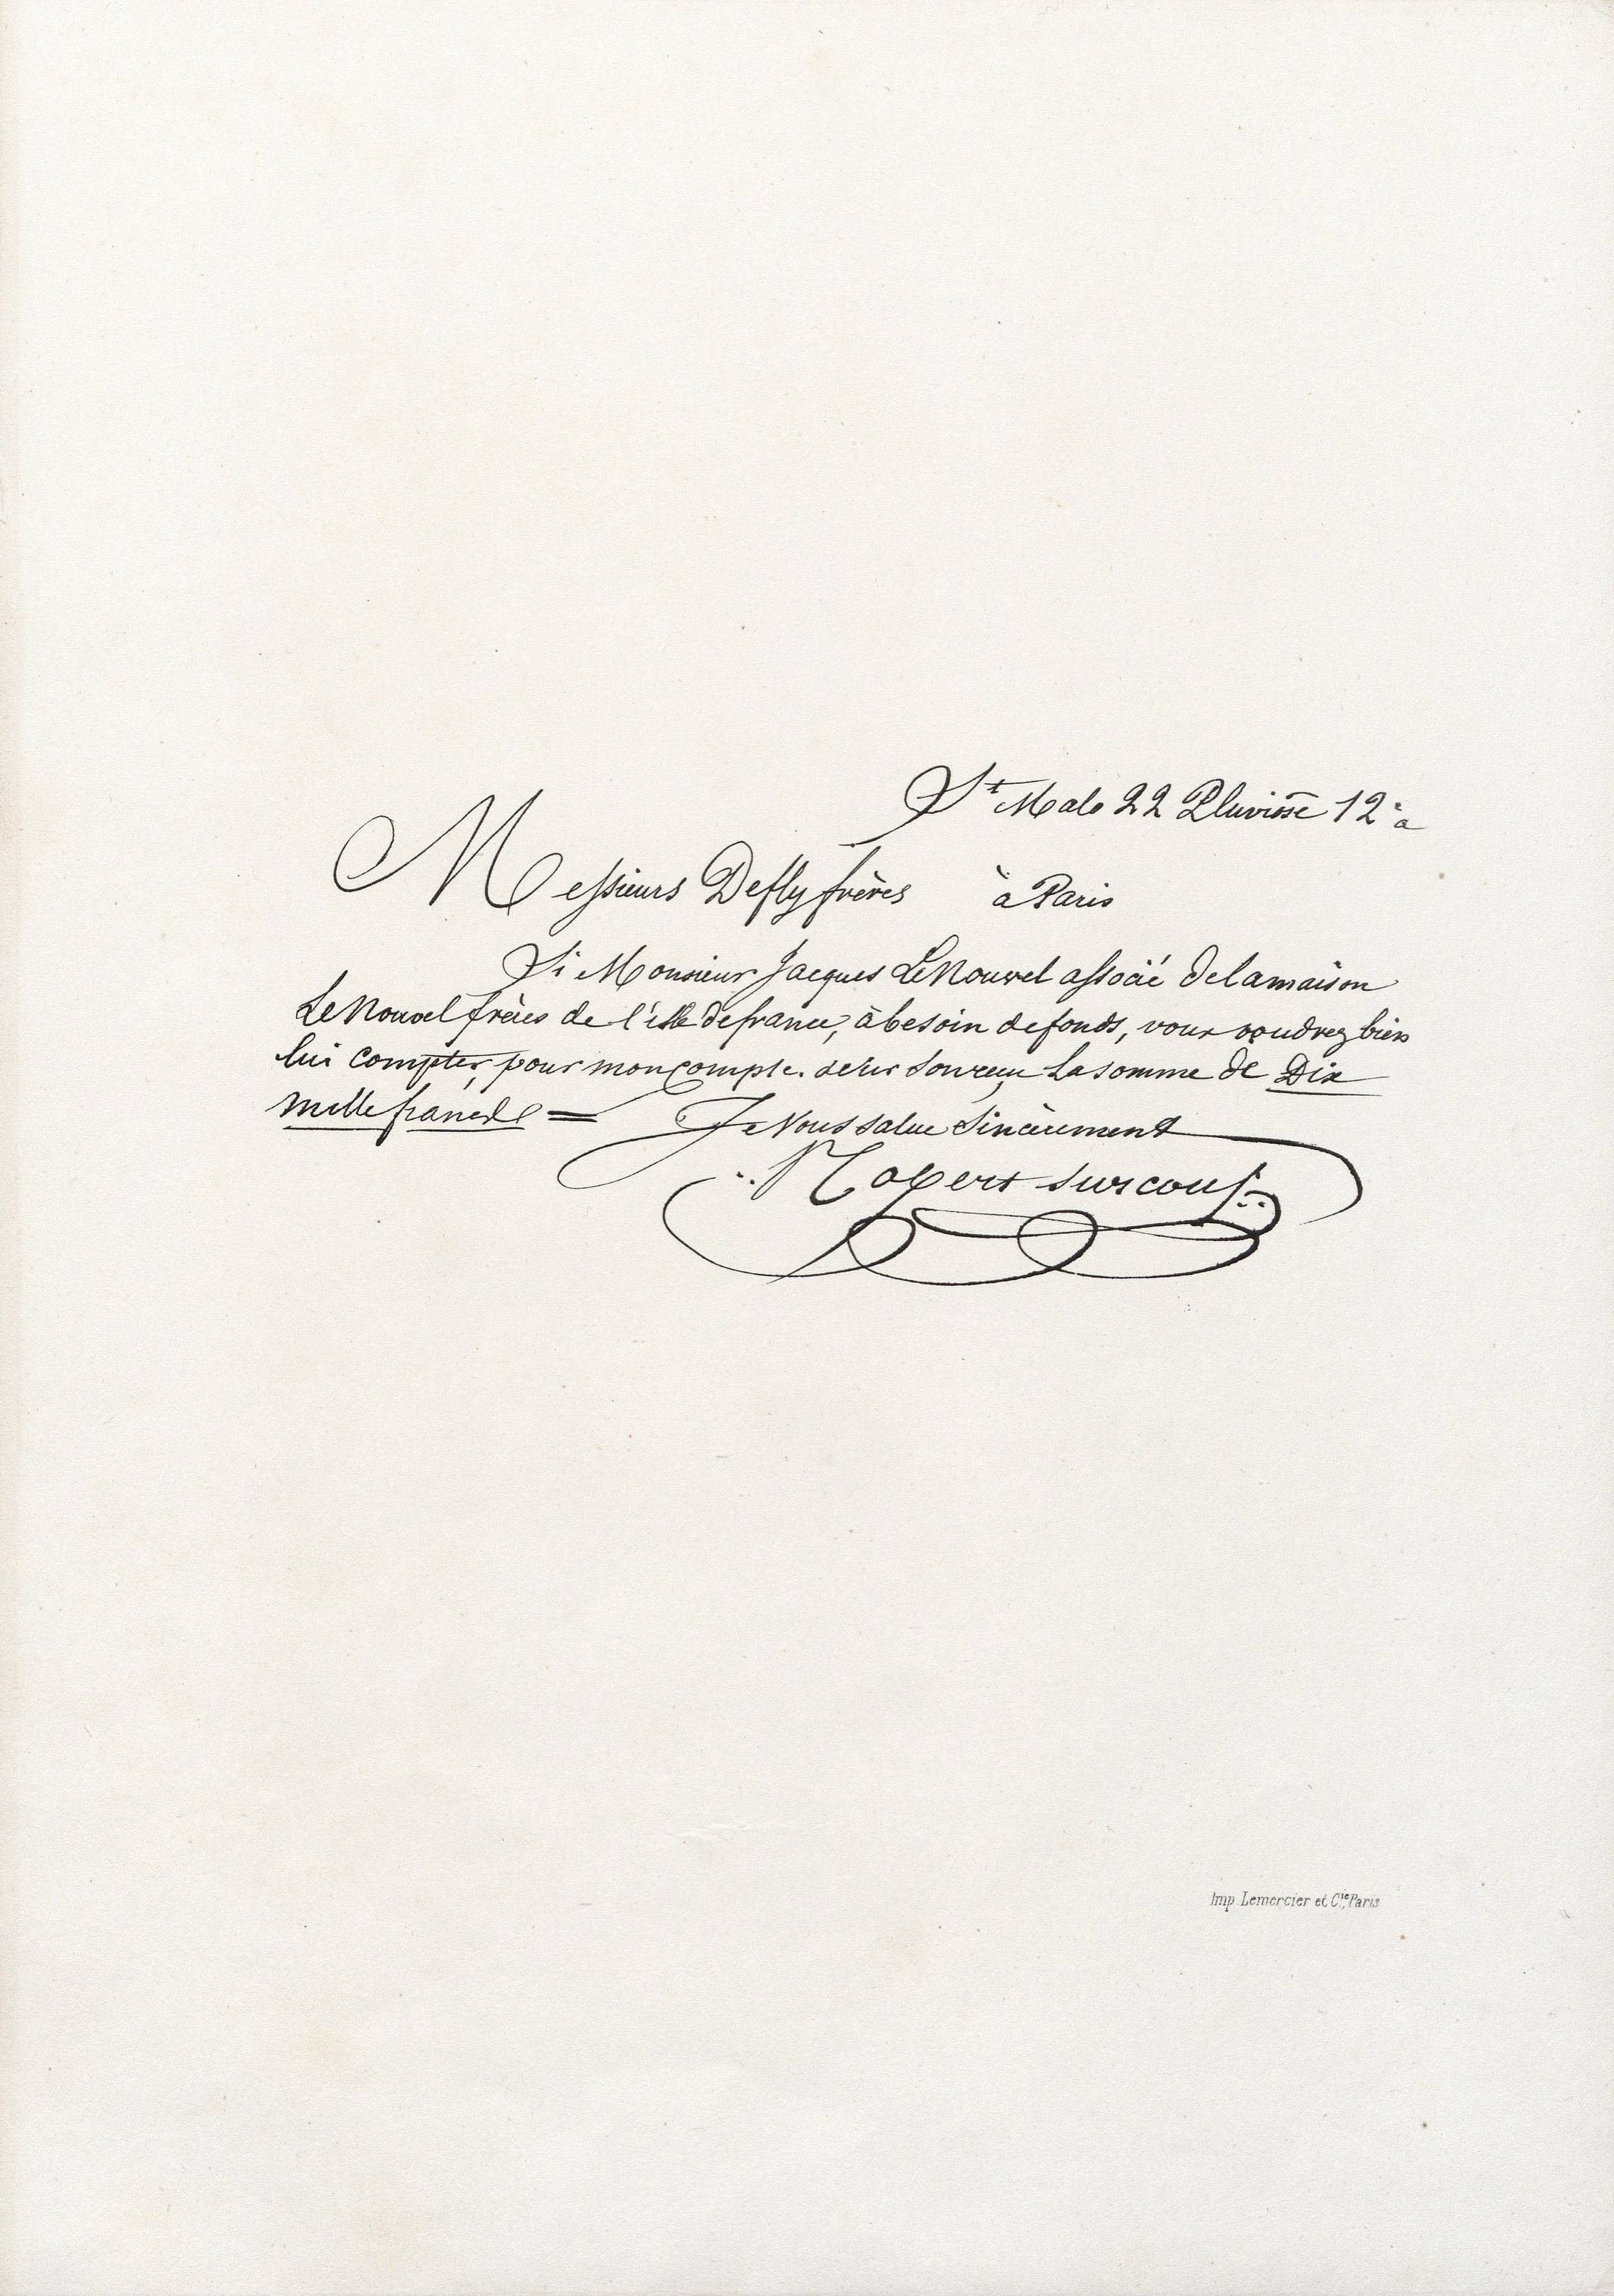 St Malo 22 Pluviose 12
Messieurs Defly frères à Paris
Si Monsieur Jacques Le Nouvel associé de la maison
Le Nouvel frères de l'isle de france, à besoin de fonds, vous voudrez bien
lui compter, pour mon compte. sur son reçu La somme de Dix
mille francs =
Je Vous salue Sincèrement
Robert Surcouf
Imp. Lemercier et Cie, Paris